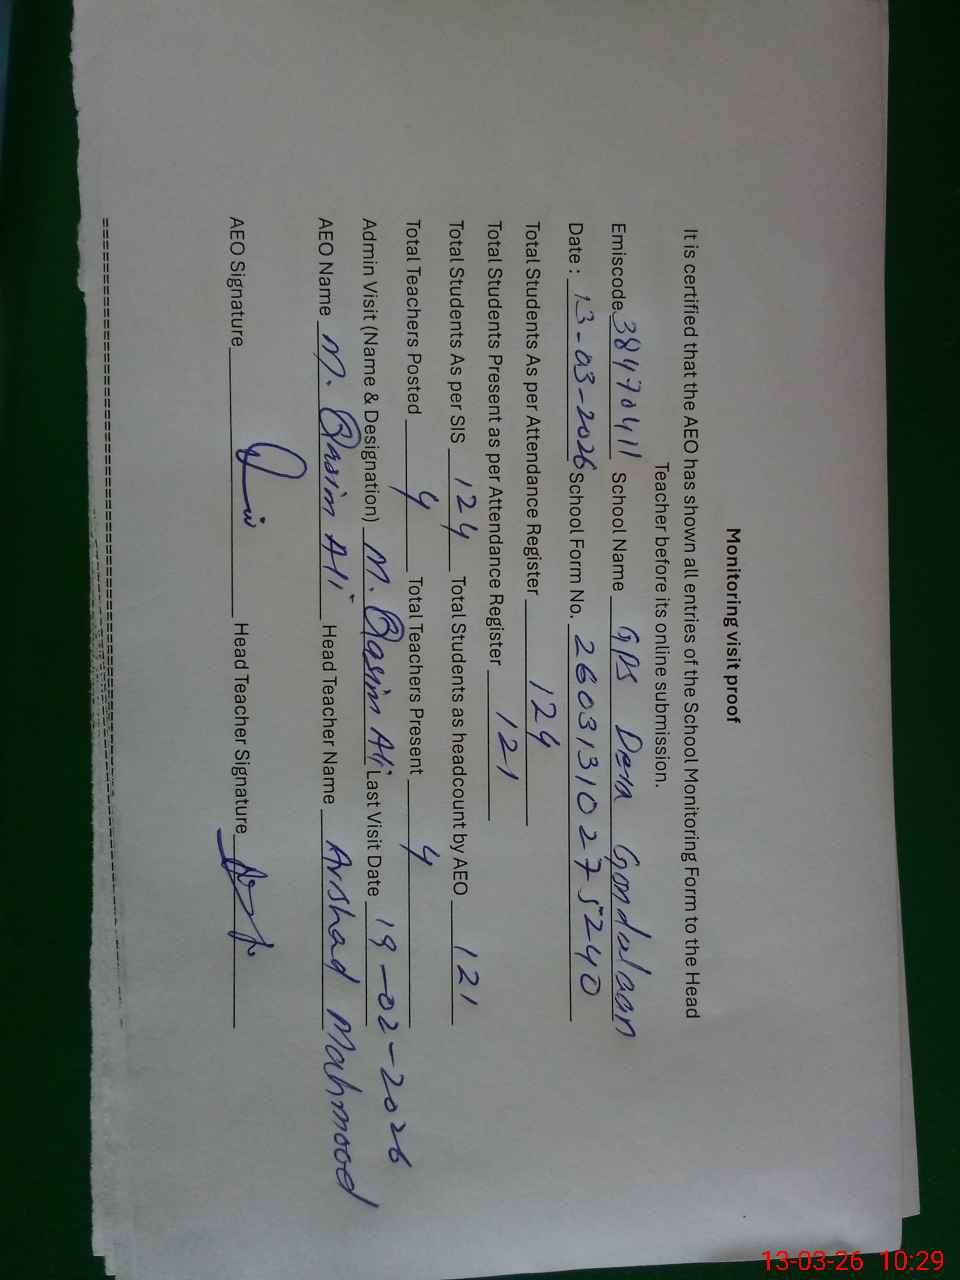 Monitoring visit proof
It is certified that the AEO has shown all entries of the School Monitoring Form to the Head
Teacher before its online submission.
Emiscode 38470411 School Name GPS Dera Gondalaan
Date : 13-03-2026 School Form No. 26031310275240
Total Students As per Attendance Register 124
Total Students Present as per Attendance Register 121
Total Students As per SIS 124 Total Students as headcount by AEO 121
Total Teachers Posted 4 Total Teachers Present 4
Admin Visit (Name & Designation) M. Qasim Ali Last Visit Date 19-02-2026
AEO Name M. Qasim Ali Head Teacher Name Arshad Mahmood
AEO Signature Head Teacher Signature
13-03-26 10:29